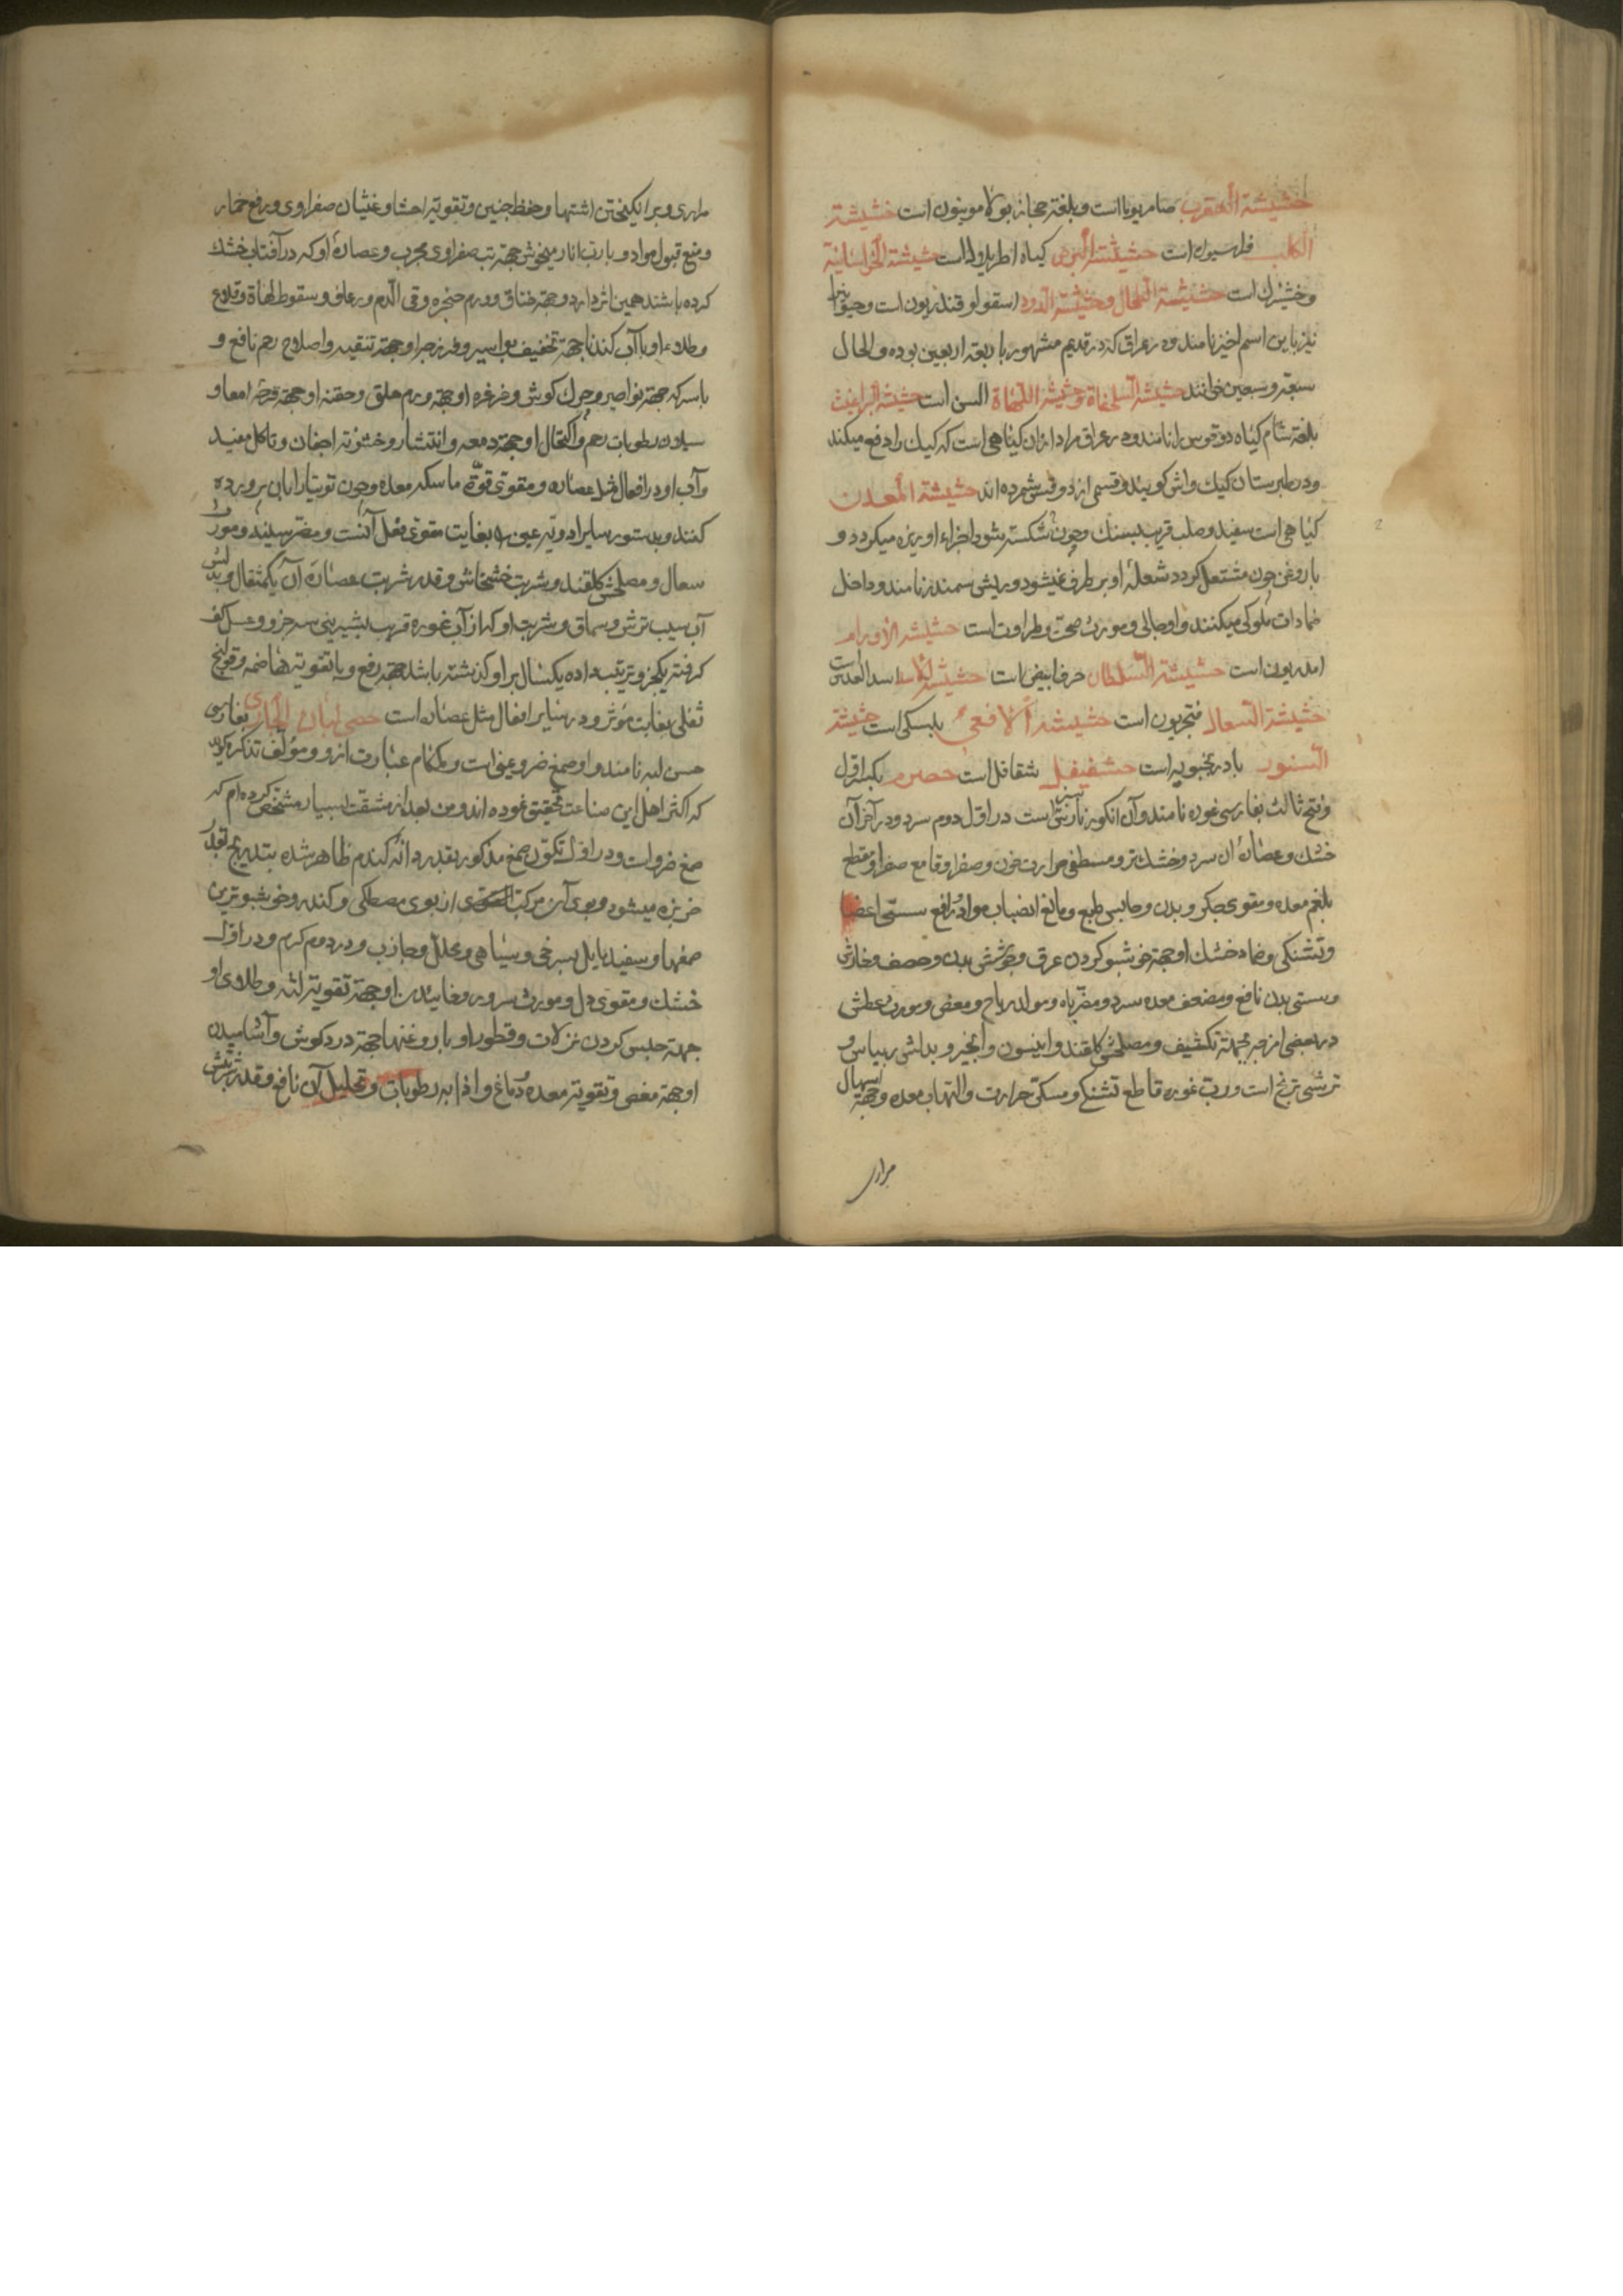 حشیشة العقرب صامریوما است و بلغة حجاز بو کلامونیون است حشیشة
الکلب فراسیون است حشیشة البرص کیاه اطریلال است حشیشة الخراسانیة
وخشیزك است حشیشة الطحال و حشیشة الدود اسقولوقندریون است و
نیز باین اسم اخیر نامند و در عراق که در قدیم مشهور باربعة اربعین بوده و الحال
سبعة وسبعین خوانند حشیشة السلحفاة و حشیشة اللهاة السن است حشیشة البراغیث
بلغة شام کیاه دوقوس را نامند و در عراق مراد ازان کیاهی است که کیك را دفع میکند
و در طبرستان کیك واش کویند و قسمی از دوقس شمرده اند حشیشة المعدن
کیاهی است سفید و صلب قریب بسنك و چون شکسته شود اجزاء او ریزه میکردد و
با روغن چون مشتعل کردد شعله او بر طرف نمیشود و ریش سمندر نامند و داخل
ضمادات ملوکی میکنند و او جالی و مورث صحت و طراوت است حشیشة الاورام
است حشیشة السلطان حرف ابیض است حشیشة الاسد اسد العدس است
حشیشة السعال فنجریون است حشیشة الافعی بلسکی است حشیشة
السنور بادرنجبویه است حشفیفل شقاقل است حصرم بکسر اول
و فتح ثالث بفارسی غوره نامند و آن انکور نارس سبز است در اول دوم سرد و در آخر آن
خشك و عصاره آن سرد و خشك تر و مسطفی حرارت خون و صفرا و قامع صفرا و مقطع
بلغم معده و مقوی جکر و بدن و حابس طبع و مانع انصباب مواد و رافع سستی اعضا
و تشنکی و ضماد خشك او جهة خوشبو کردن عرق و بدن و حصف و خارش
و سستی بدن نافع و مضعف معده سرد و مضر باه و مولد ریاح و مغص و مورث عطش
در بعضی امزجه بجهة تکثیف و مصلحش کلقند و انیسون و انجیر و بدلش ریباس و
ترشی ترنج است و رب غوره قاطع تشنکی و مسکن حرارت و التهاب معده و جهة اسهال
مراری
مراری و برانکیختن اشتها و حفظ جنین و تقویة احشا و غثیان صفراوی و رفع خمار
و منع قبول مواد و با رب انار میخوش جهة تب صفراوی مجرب و عصاره او که در آفتاب خشك
کرده باشند همین اثر دارد و جهة خناق و ورم حنجره و قی الدم و رعاف و سقوط لهاة و قلاع
و طلاء او با آب کندنا جهة تخفیف بواسیر و فرزجه او جهة تنقیه و اصلاح رحم نافع و
با سرکه جهة نواصیر و چرك کوش و غرغره او جهة ورم حلق و حقنه او جهة قرحه امعا و
سیلان رطوبات رحم و اکتحال او جهة دمعه و انتشار و خشونة اجفان و تاکل مفید
و آب او در افعال مثل عصاره و مقوی قوة ماسکه معده و چون توتیا را بآن پرورده
کنند و بدستور سایر ادویه عین را بغایت مقوی فعل آنست و مضر سینه و مورث
سعال و مصلحش کلقند و شربت خشخاش و قدر شربت عصاره آن یکمثقال و بدلش
آب سیب ترش و سماق و شربت او که از آب غوره قریب بشیرینی سه جزو و عسل کف
کرفته یکجزو ترتیب داده یکسال بر او کذشته باشد جهة رفع وبا و تقویة هاضمه و قولنج
ثفلی بغایت مؤثر و در سایر افعال مثل عصاره است حصی لبان الجاری بفارسی
حسن لبه نامند و او صمغ ضرو یمنی است و کمکام عبارت ازو و مؤلف تذکره کوید
که اکثر اهل این صناعت تحقیق نموده اند و من بعد از مشقت بسیار مشخص کرده ام که
صمغ ضرو است و در اول تکون صمغ مذکور بقدر دانه کندم ظاهر شده بتدریج بقدر
خربزه میشود و بوی آن مرکب از بوی مصطکی و کندر و خوشبوترین
صمغها و سفید مایل بسرخی و سیاهی و محلل و جاذب و در دوم کرم و در اول
خشك و مقوی دل و مورث سرور و خاییدن او جهة تقویة لثه و طلای او
جهة حبس کردن نزلات و قطور او با روغنها جهة درد کوش و آشامیدن
او جهة مغص و تقویة معده و دماغ و اذابه رطوبات و تحلیل آن نافع و قدر شربتش